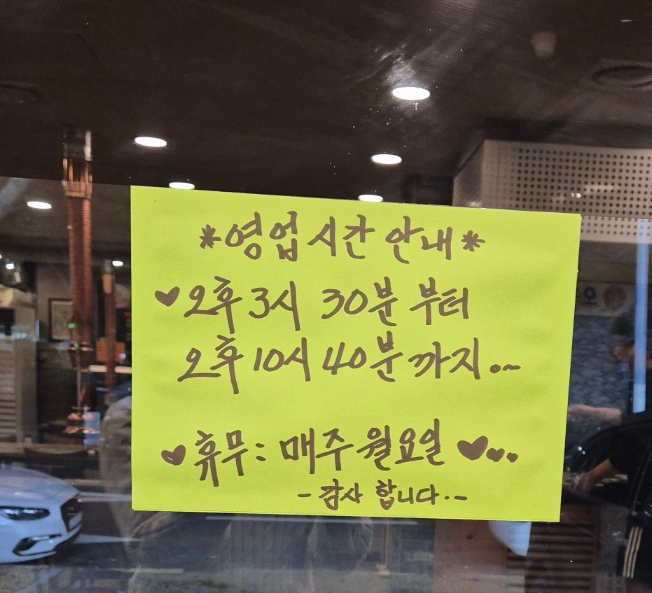 *영업시간 안내*
♥오후 3시 30분 부터
오후 10시 40분 까지..~
♥휴무: 매주 월요일 ♥♥..
- 감사 합니다..-